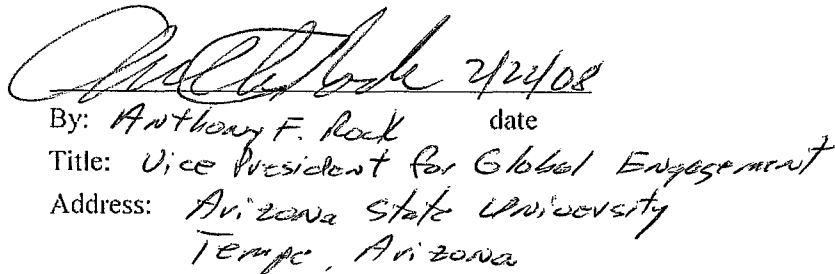 2/22/08
By: Anthony F. Rock date
Title: Vice President for Global Engagement
Address: Arizona State University
Tempe, Arizona